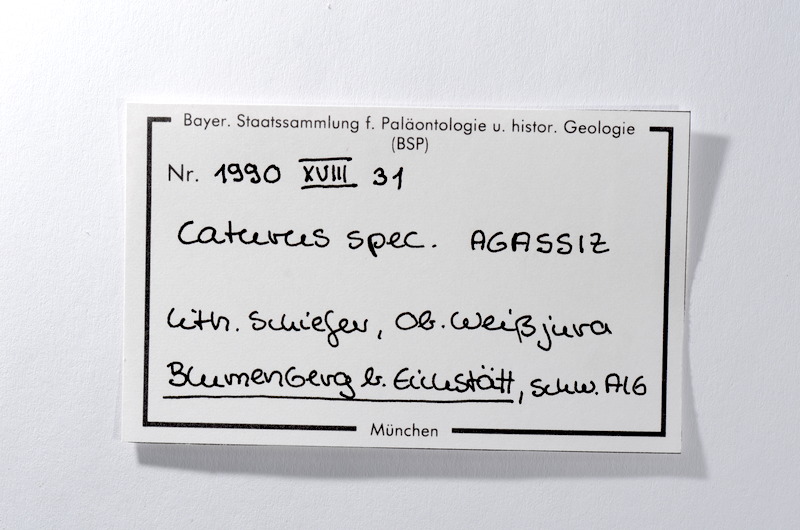 Bayer. Staatssammlung f. Paläontologie u. histor. Geologie
(BSP)
Nr. 1990 XVIII 31
Caturus spec. AGASSIZ
Lith. Schiefer, Ob. Weißjura
Blumenberg b. Eichstätt, Schw. Alb
München